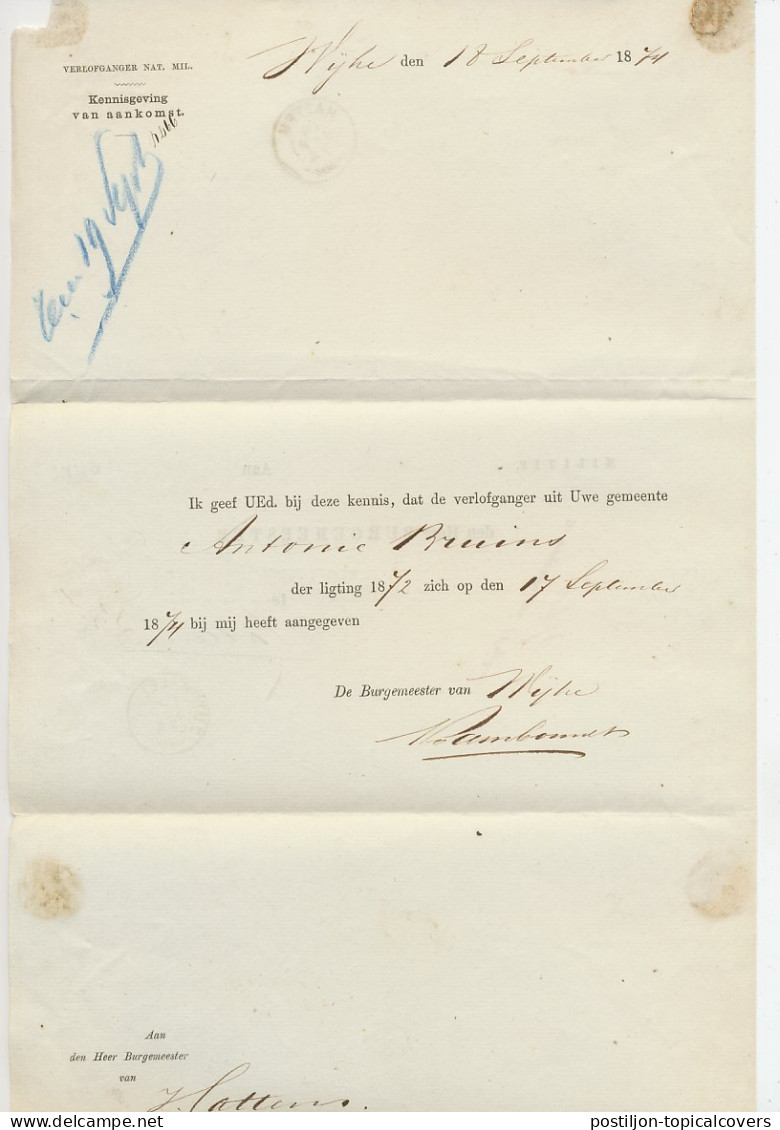 VERLOFGANGER NAT. MIL.
Kennisgeving
van aankomst.
Wijhe den 18 September 1874
19 Sept
Ik geef UEd. bij deze kennis, dat de verlofganger uit Uwe gemeente
Antonie Bruins
der ligting 1872 zich op den 17 September
1874 bij mij heeft aangegeven
De Burgemeester van Wijhe
Aan
den Heer Burgemeester
van
Hattem.
postiljon-topicalcovers